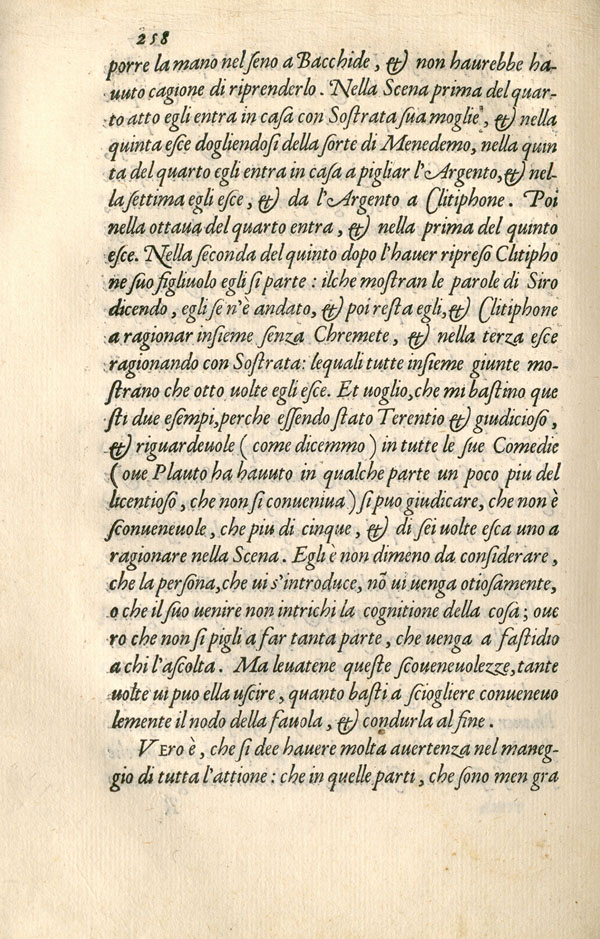 258
porre la mano nel ſeno a Bacchide, & non haurebbe ha-
uuto cagione di riprenderlo. Nella Scena prima del quar-
to atto egli entra in caſa con Soſtrata ſua moglie, & nella
quinta eſce dogliendoſi della ſorte di Menedemo, nella quin
ta del quarto egli entra in caſa a pigliar l'Argento, & nel-
la ſettima egli eſce, & da l'Argento a Clitiphone. Poi
nella ottaua del quarto entra, & nella prima del quinto
eſce. Nella ſeconda del quinto dopo l'hauer ripreſo Clitipho
ne ſuo figliuolo egli ſi parte: ilche moſtran le parole di Siro
dicendo, egli ſe n'è andato, & poi reſta egli, & Clitiphone
a ragionar inſieme ſenza Chremete, & nella terza eſce
ragionando con Soſtrata: lequali tutte inſieme giunte mo-
ſtrano che otto uolte egli eſce. Et uoglio, che mi baſtino que
ſti due eſempi, perche eſſendo ſtato Terentio & giudicioſo,
& riguardeuole (come dicemmo) in tutte le ſue Comedie
(oue Plauto ha hauuto in qualche parte un poco piu del
licentioſo, che non ſi conueniua) ſi puo giudicare, che non è
ſconueneuole, che piu di cinque, & di ſei uolte eſca uno a
ragionare nella Scena. Egli è non dimeno da conſiderare,
che la perſona, che ui s'introduce, nõ ui uenga otioſamente,
o che il ſuo uenire non intrichi la cognitione della coſa; oue
ro che non ſi pigli a far tanta parte, che uenga a faſtidio
a chi l'aſcolta. Ma leuatene queſte ſcoueneuolezze, tante
uolte ui puo ella uſcire, quanto baſti a ſciogliere conueneuo
lemente il nodo della fauola, & condurla al fine.
VERO è, che ſi dee hauere molta auertenza nel maneg-
gio di tutta l'attione: che in quelle parti, che ſono men gra